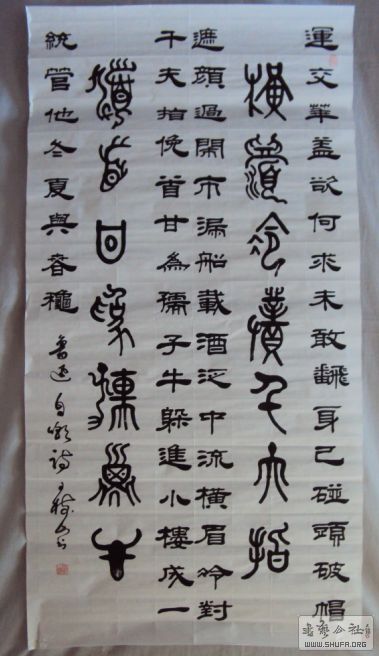 運交華蓋欲何求未敢飜身已碰頭破帽
橫眉冷對千夫指
遮顏過鬧市漏船載酒泛中流橫眉冷對
千夫指俛首甘為孺子牛躲進小樓成一
首甘為孺子牛
統管他冬夏與春穐
魯迅自嘲詩
书法公社
WWW.SHUFA.ORG